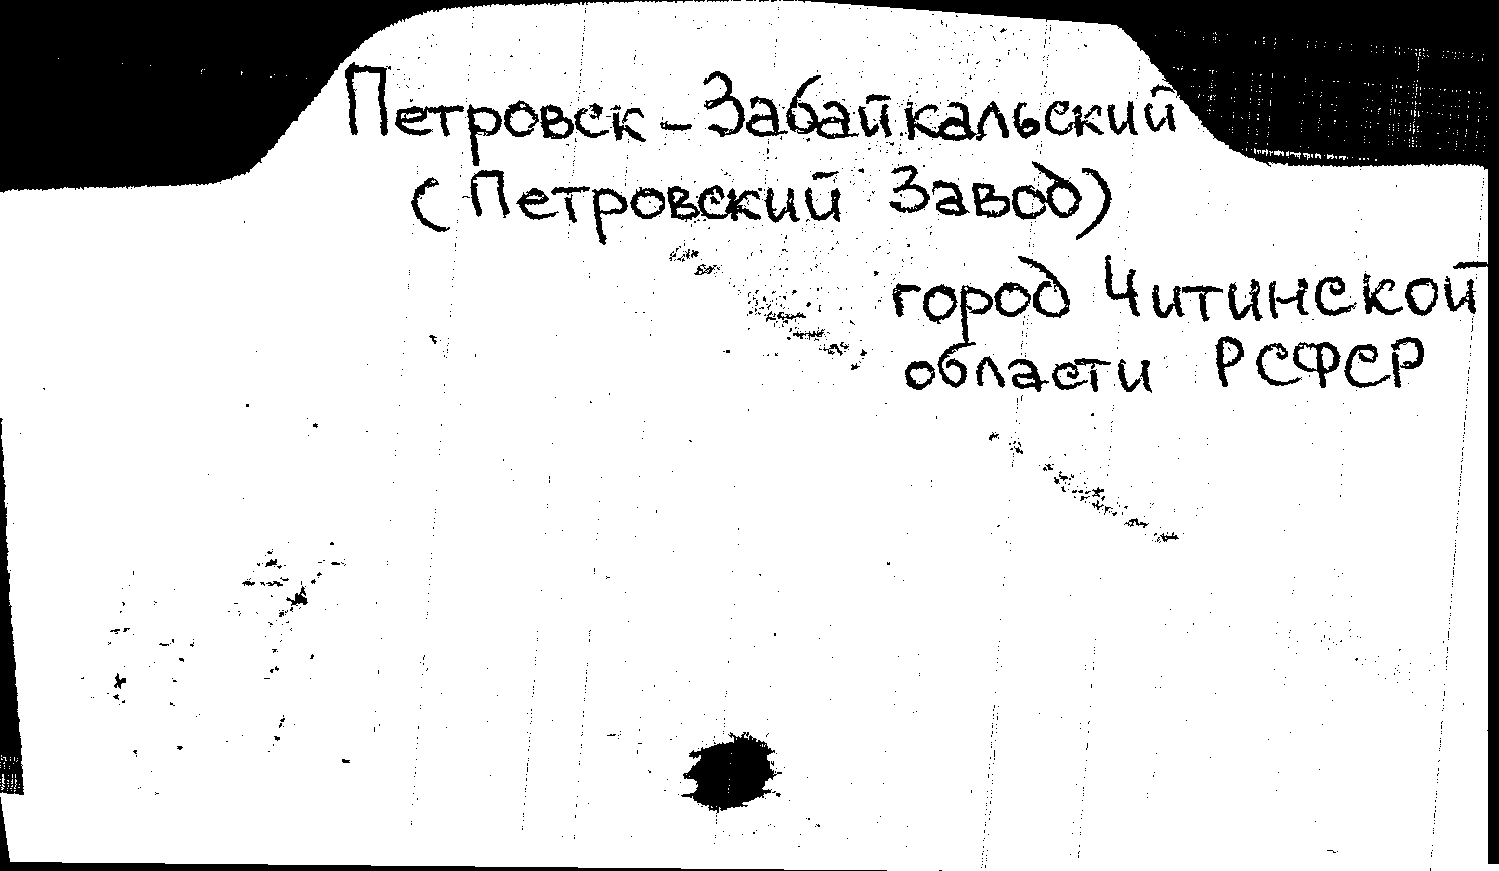 Петровск-Забайкальский
(Петровский Завод)
город Читинской
области РСФСР